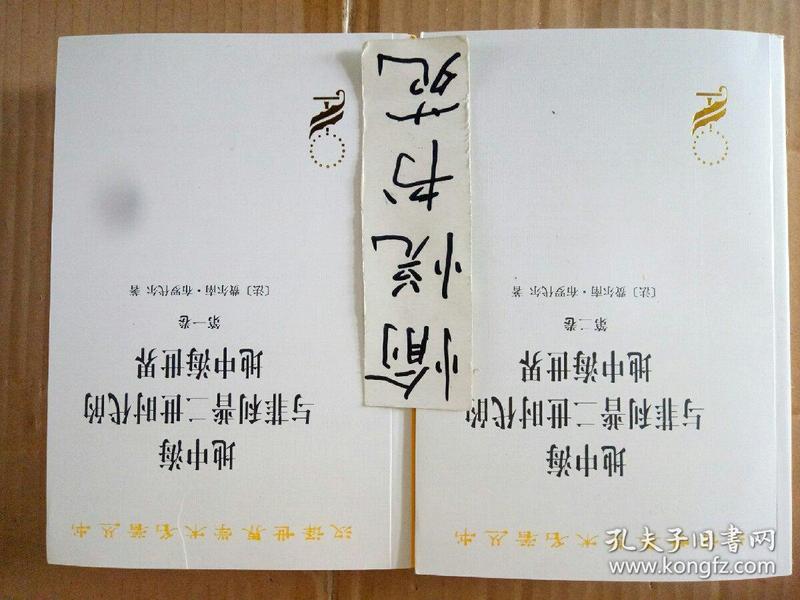 汉译世界学术名著丛书
地中海
与菲利普二世时代的
地中海世界
第一卷
〔法〕费尔南·布罗代尔 著
地中海
与菲利普二世时代的
地中海世界
第二卷
〔法〕费尔南·布罗代尔 著
愉悦书苑
孔夫子旧书网
www.kongfz.com